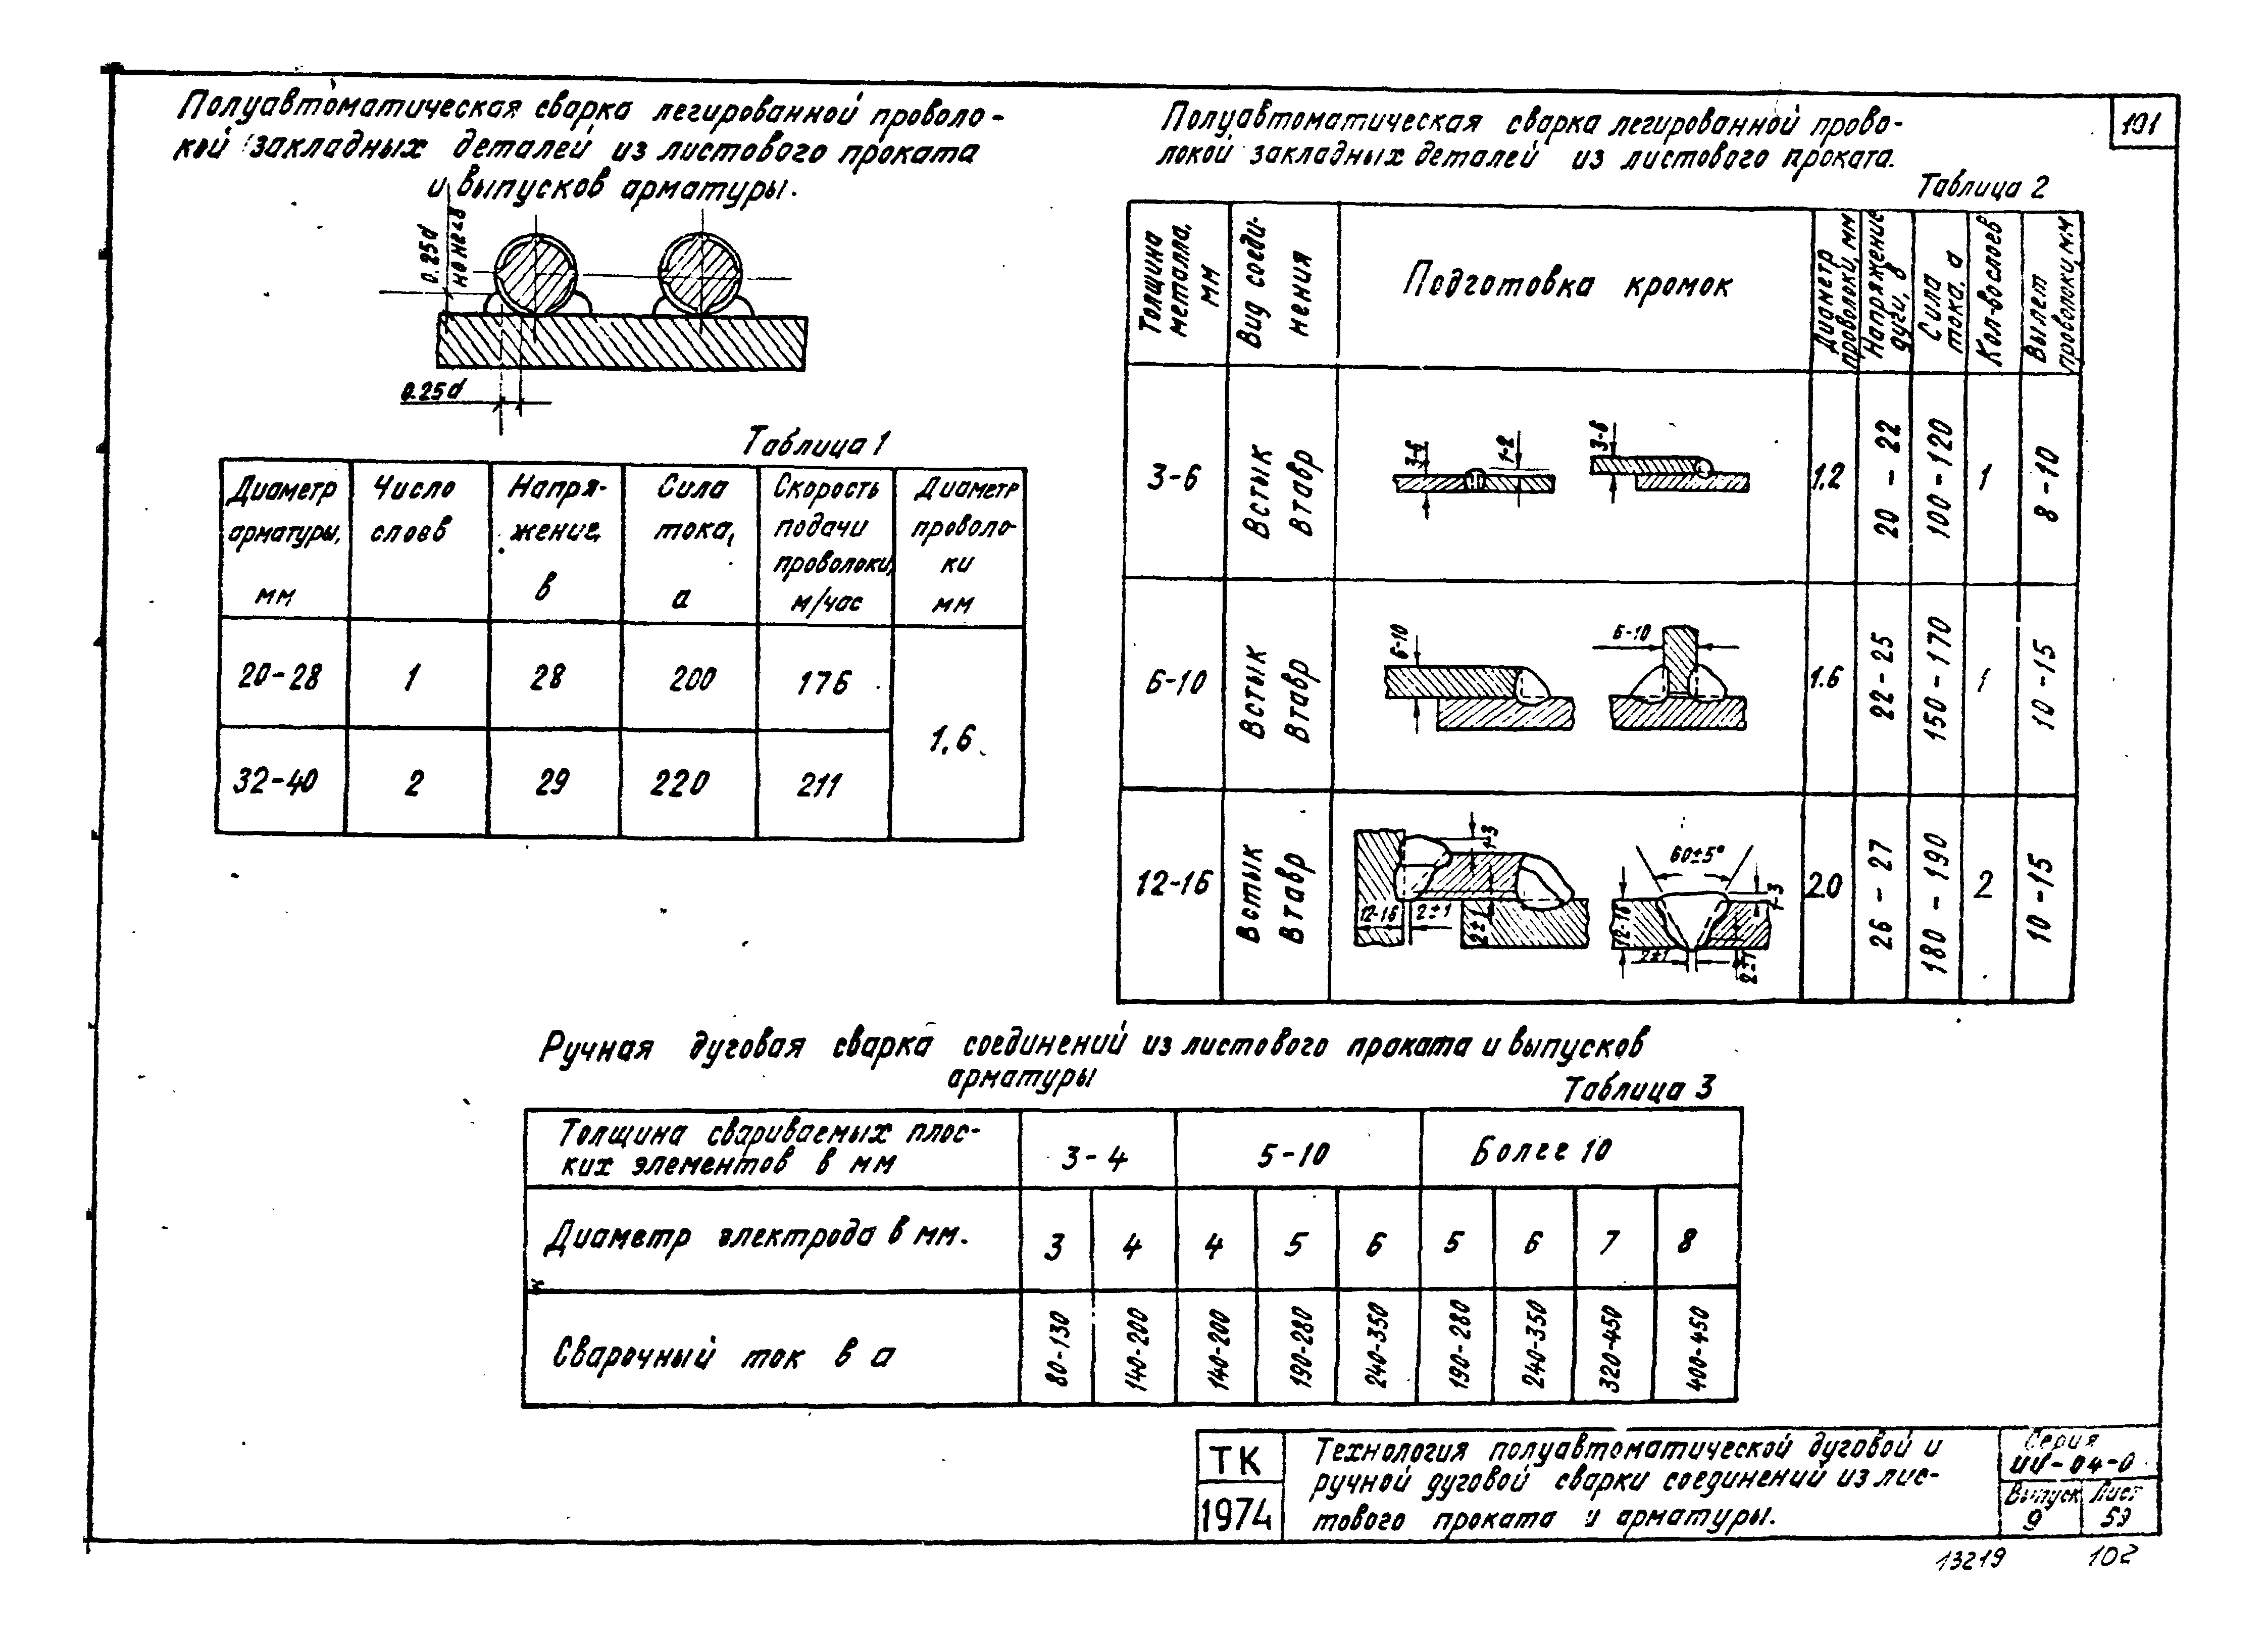 101
Полуавтоматическая сварка легированной проволо-
кой закладных деталей из листового проката
и выпусков арматуры.
0.25d
но не <8
0.25d
Таблица 1
Диаметр арматуры, мм
Число слоев
Напря- жение, в
Сила тока, а
Скорость подачи проволоки, м/час
Диаметр проволо- ки мм
20-28 1 28 200 176
1.6
32-40 2 29 220 211
Полуавтоматическая сварка легированной прово-
локой закладных деталей из листового проката.
Таблица 2
Толщина металла, мм
Вид соеди- нения
Подготовка кромок
Диаметр проволоки, мм
Напряжение дуги, в
Сила тока, а
Кол-во слоев
Вылет проволоки, мм
3-6
Встык
Втавр
3-6
1-2
3-6
1.2
20 - 22
100-120
1
8-10
6-10
Встык
Втавр
6-10
6-10
1.6
22-25
150-170
1
10-15
12-16
Встык
Втавр
1-3
12-16
2±1
2±1
60±5°
1-3
12-16
2±1
2±1
2.0
26 - 27
180 - 190
2
10-15
Ручная дуговая сварка соединений из листового проката и выпусков
арматуры
Таблица 3
Толщина свариваемых плос-
ких элементов в мм
3-4 5-10 Более 10
Диаметр электрода в мм.
3 4 4 5 6 5 6 7 8
Сварочный ток в а
80-130 140-200 140-200 190-280 240-350 190-280 240-350 320-450 400-450
ТК
1974
Технология полуавтоматической дуговой и
ручной дуговой сварки соединений из лис-
тового проката и арматуры.
Серия
ИИ-04-0
Выпуск Лист
9 59
13219 102